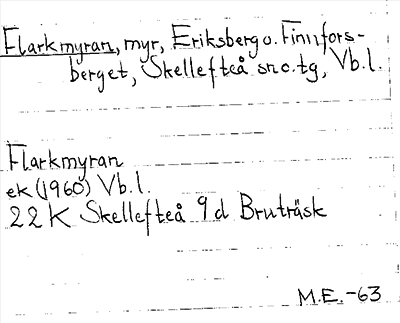 Flarkmyran, myr, Eriksberg o. Finnfors-
berget, Skellefteå sn o. tg, Vb.l.
Flarkmyran
ek (1960) Vb.l.
22K Skellefteå 9d Bruträsk
M.E.-63